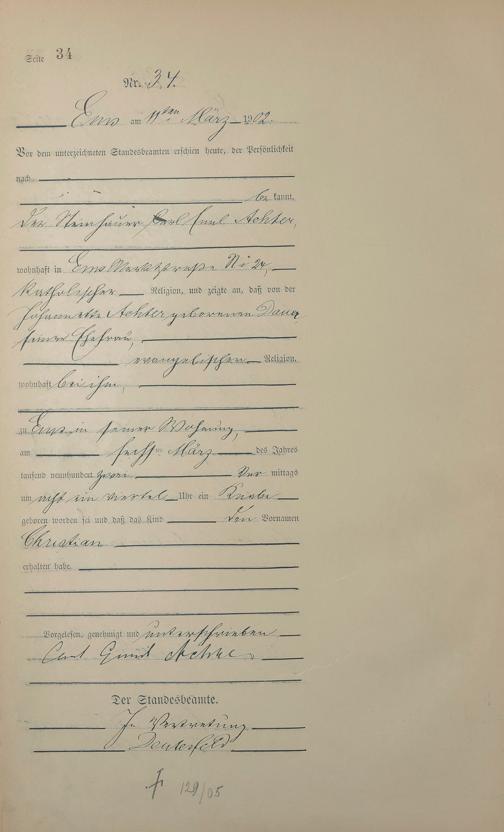 Seite 34
Nr. 34.
Ems am 11ten März 1902.
Vor dem unterzeichneten Standesbeamten erschien heute, der Persönlichkeit
nach
be kannt,
der Steinhauer Carl Emil Achter,
wohnhaft in Ems Marktstraße No 24,
katholischer Religion, und zeigte an, daß von der
Achter geborenen
seiner Ehefrau,
evangelischer Religion,
wohnhaft bei ihm,
zu Ems in seiner Wohnung,
am sechsten März des Jahres
tausend neunhundert zwei Vor mittags
um acht ein viertel Uhr ein Knabe
geboren worden sei und daß das Kind den Vornamen
Christian
erhalten habe.
Vorgelesen, genehmigt und unterschrieben
Carl Emil Achter
Der Standesbeamte.
In Vertretung
129/05